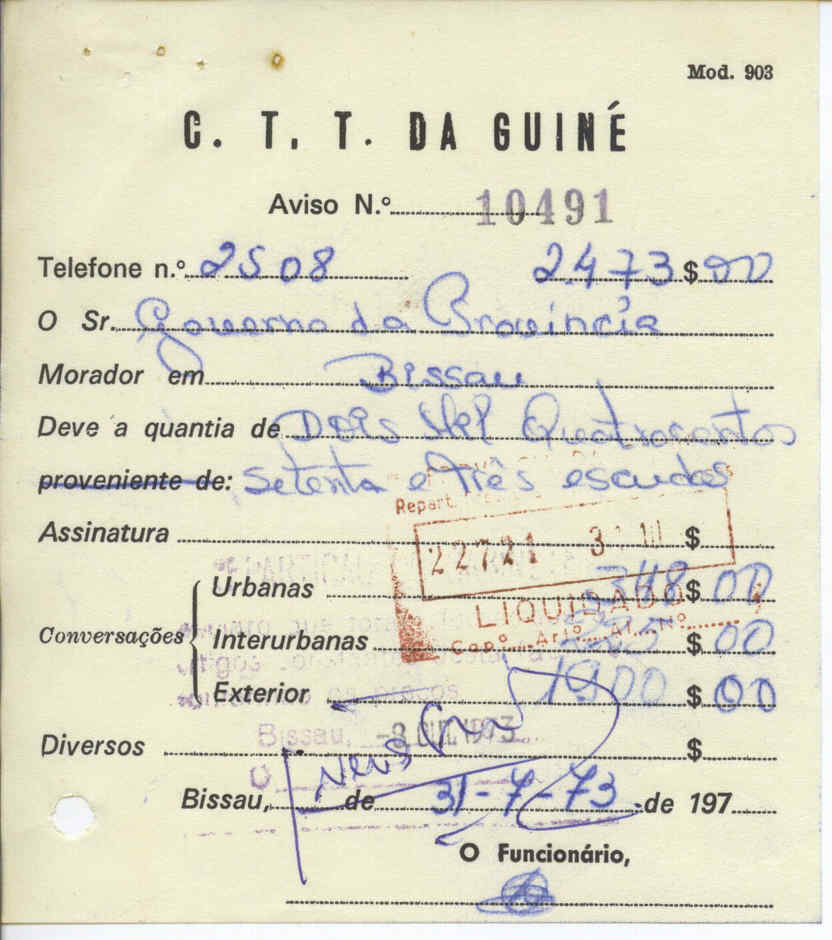 Mod. 903
C. T. T. DA GUINÉ
Aviso N.º 10491
Telefone n.º 2508 2.473 $ 00
O Sr. Governo da Provincia
Morador em Bissau
Deve a quantia de Dois Mil Quatrocentos
proveniente de: Setenta e três escudos
Repart.
Assinatura $
22721
Urbanas 348 $ 00
LIQUIDADO
Conversações Interurbanas $ 00
Cap.º Artº Al. Nº
Exterior 1900 $ 00
Bissau, 1973
Diversos $
Bissau, de 31-7-73 de 197
O Funcionário,